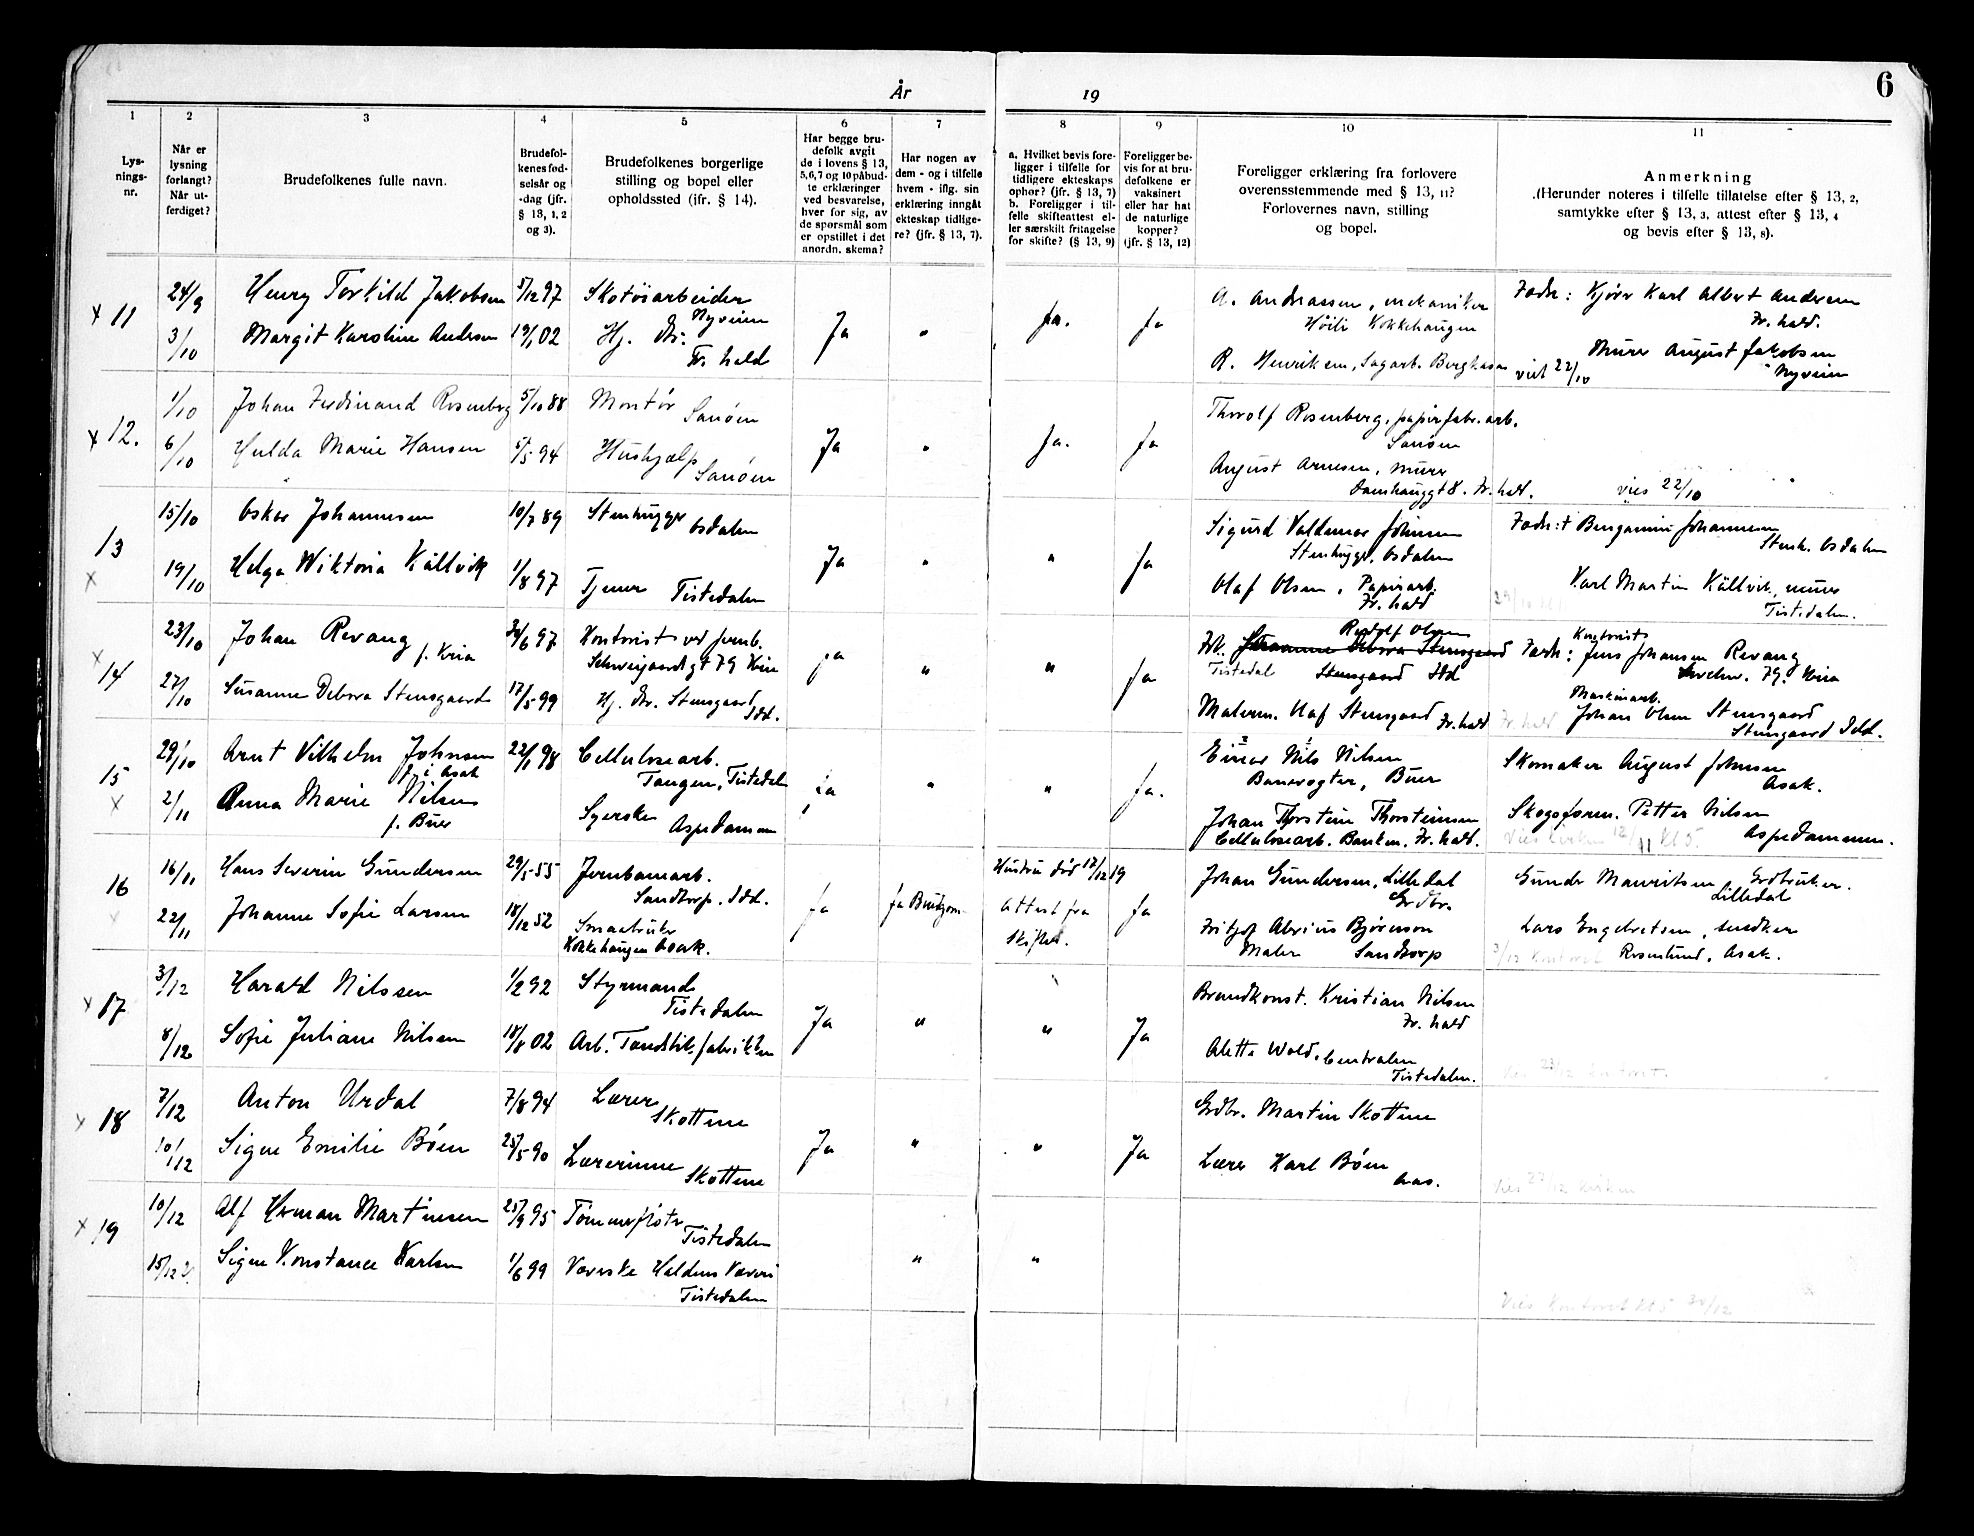 6
År 19
1 2 3 4 5 6 7 8 9 10 11
Lys-
nings-
nr.
Når er
lysning
forlangt?
Når ut-
ferdiget?
Brudefolkenes fulle navn.
Brudefol-
kenes fød-
selsår og
-dag (jfr.
§ 13, 1, 2
og 3).
Brudefolkenes borgerlige
stilling og bopel eller
opholdssted (ifr. § 14).
Har begge bru-
defolk avgit
de i lovens § 13,
5,6,7 og 10 påbud-
te erklæringer
ved besvarelse,
hver for sig, av
de spørsmål som
er opstillet i det
anordn. skema?
Har nogen av
dem - og i tilfelle
hvem - iflg. sin
erklæring inngåt
ekteskap tidlige-
re? (jfr. § 13, 7).
a. Hvilket bevis fore-
ligger i tilfelle for
tidligere ekteskaps
ophør? (jfr. § 13, 7)
b. Foreligger i til-
felle skifteattest el-
ler særskilt fritagelse
for skifte? (§ 13, 9)
Foreligger be-
vis for at bru-
defolkene er
vaksinert
eller har hat
de naturlige
kopper?
(jfr. § 13, 12)
Foreligger erklæring fra forlovere
overensstemmende med § 13, 11?
Forlovernes navn, stilling
og bopel.
Anmerkning
(Herunder noteres i tilfelle tillatelse efter § 13, 2,
samtykke efter § 13, 3, attest efter § 13, 4
og bevis efter § 13, 8).
x 11
24/9
3/10
Henry Torkild Jakobsen
Margit Karoline Andersen
5/12 97
19/1 02
Skotöiarbeider
Nyveien
Hj. do.
Fr. hald
Ja
"
Ja.
Ja
A. Andreassen, mekaniker
Höili Kokkehaugen
R. Henriksen, Sagarb. Berghaven
Fadr: Kjörer Karl Albert Andersen
Fr. hald.
Murer August Jakobsen
Nyveien
viet 22/10
x 12.
1/10
6/10
Johan Ferdinand Rosenberg
Hulda Marie Hansen
5/10 88
5/5 94
Montör
Sanöen
Hushjælp
Sanöen
Ja
"
Ja.
Ja
Thorolf Rosenberg, papirfabr.arb.
Sanöen
August Arnesen, murer
Damhauggt 8. Fr. hald.
vies 22/10
13
x
15/10
19/10
Oskar Johannesen
Helga Wiktoria Källvik
10/7 89
1/8 97
Stenhugger
Osdalen
Tjener Tistedalen
Ja
"
"
Ja
Sigurd Valdemar Johnsen
Stenhugger, Osdalen
Olaf Olsen, Papirarb.
Fr. hald
Fadr:t Bengamin Johannesen
Stenh. Osdalen
Karl Martin Källvik, murer
Tistedalen.
x
14
23/10
27/10
Johan Revang
f. Kria
Susanne Debora Stensgaard
30/6 97
17/5 99
Kontorist ved jernb.
Schweigaardsgt 79 Kria
Hj. do. Stensgaard
Idd.
Ja
"
"
Ja
Rudolf Olsen
Frk. Susanne Debora Stensgaard
Tistedal Stensgaard Idd
Malerm. Olaf Stensgaard Fr. hald
Kontorist
Fadr: Jens Johansen Revang
Schw. 79. Kria
Maskinarb.
Johan Olsen Stensgaard
Stensgaard Idd.
15
x
29/10
2/11
Arnt Vilhelm Johnsen
f. i Asak
Anna Marie Nilsen
f. Buer
22/1 98
Cellulosearb.
Tangen, Tistedalen
Syerske
Aspedammen
Ja
"
"
Ja.
Einar Nils Nilsen
Banevogter, Buer
Johan Thorstein Thorsteinsen
Cellulosearb. Banken. Fr. hald.
Skomaker August Johnsen
Asak.
Skogsforem. Petter Nilsen
Aspedammen.
Vies kirken 12/11 kl 5.
16
x
16/11
22/11
Hans Severin Gundersen
Johanne Sofie Larsen
29/5 55
18/12 52
Jernbanearb.
Sandtorp. Idd.
Smaabruker
Kokkehaugen Asak.
Ja
Ja Brudgom.
Hustru död 17/12 19
Attest fra
Skiftet.
Ja
Johan Gundersen, Lilledal
Grdbr.
Fritjof Alvius Bjørnson
Maler Sandtorp
Gunder Mauritsen, Grdbruker.
Lilledal
Lars Engebretsen, snedker
Rosenlund, Asak.
3/12 kontoret
x 17
3/12
8/12
Harald Nilssen
Sofie Juliane Nilsen
1/2 92
18/8 02
Styrmand
Tistedalen
Arb. Tændstikfabrikken
Ja
"
"
Ja
Brandkonst. Kristian Nilsen
Fr. hald
Alette Wold, Centralen
Tistedalen.
Vies 23/12 kontoret.
x 18
7/12
10/12
Anton Urdal
Signe Emilie Böen
7/8 94
25/5 90
Lærer
Skottene
Lærerinne
Skottene
Ja
"
"
Ja
Grdbr. Martin Skottene
Lærer Karl Böen
Aas.
Vies 27/12 kirken
x 19
10/12
15/12
Alf Herman Martinsen
Signe Konstance Karlsen
25/9 95
1/6 99
Tömmerfløter
Tistedalen
Væverske Haldens Væveri
Tistedalen
"
"
Vies kontoret kl 5 30/12